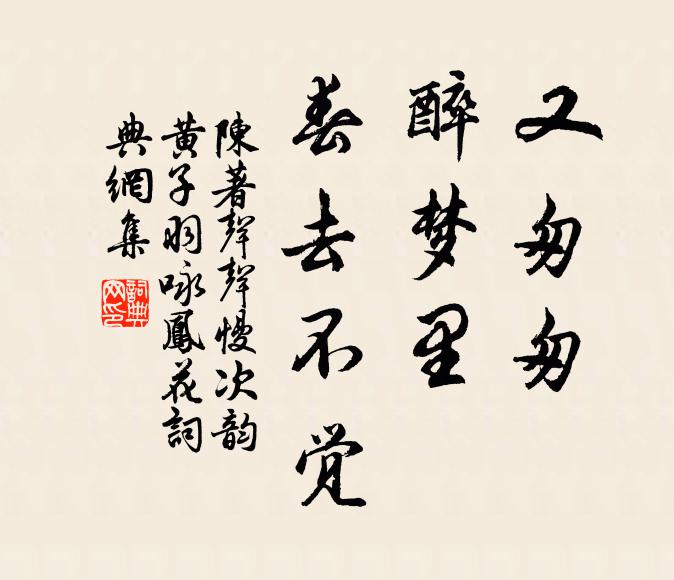 又匆匆
醉梦里
春去不觉
陳著聲聲慢次韵
黄子羽咏鳳花詞
典網集
詞典网印